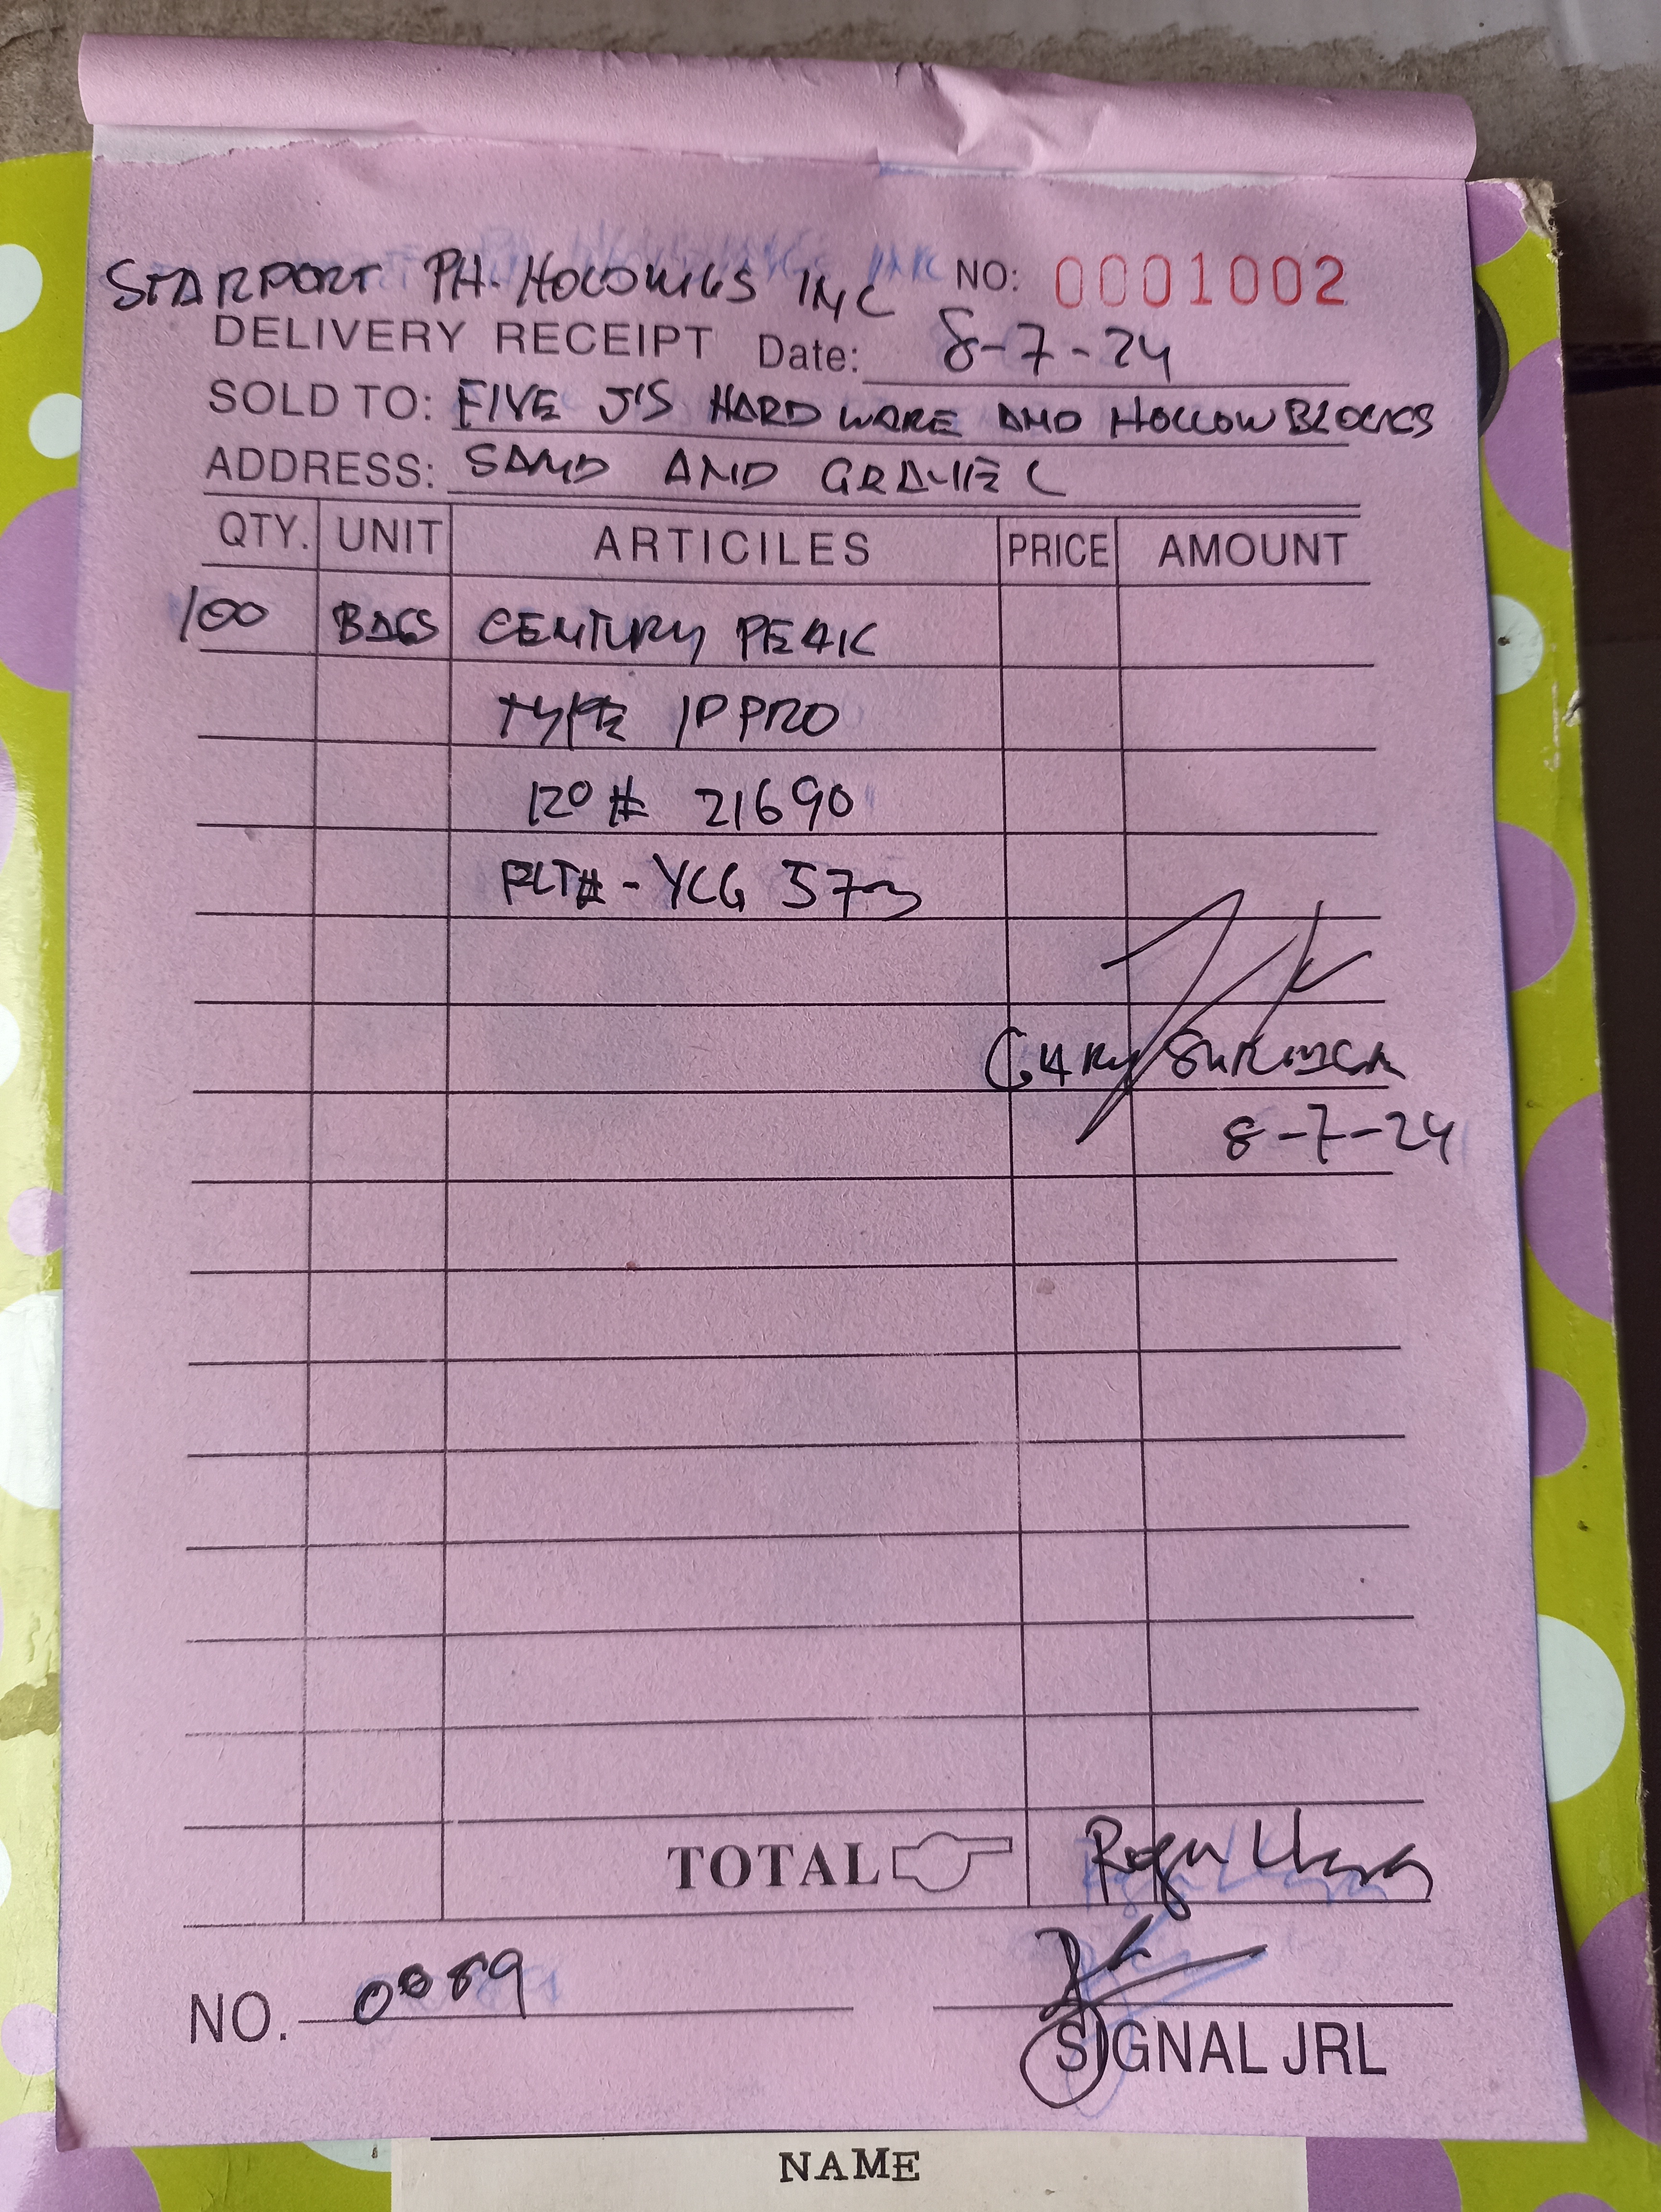 STARPORT PH. HOLDINGS INC NO: 0001002
DELIVERY RECEIPT Date: 8-7-24
SOLD TO: FIVE J'S HARDWARE AND HOLLOW BLOCKS
ADDRESS: SAND AND GRAVEL
QTY. UNIT ARTICILES PRICE AMOUNT
100 BAGS CENTURY PEAK
TYPE 1P PRO
RO # 21690
PLT# - YCG 573
GARY
8-7-24
TOTAL
NO. 0089
SIGNAL JRL
NAME